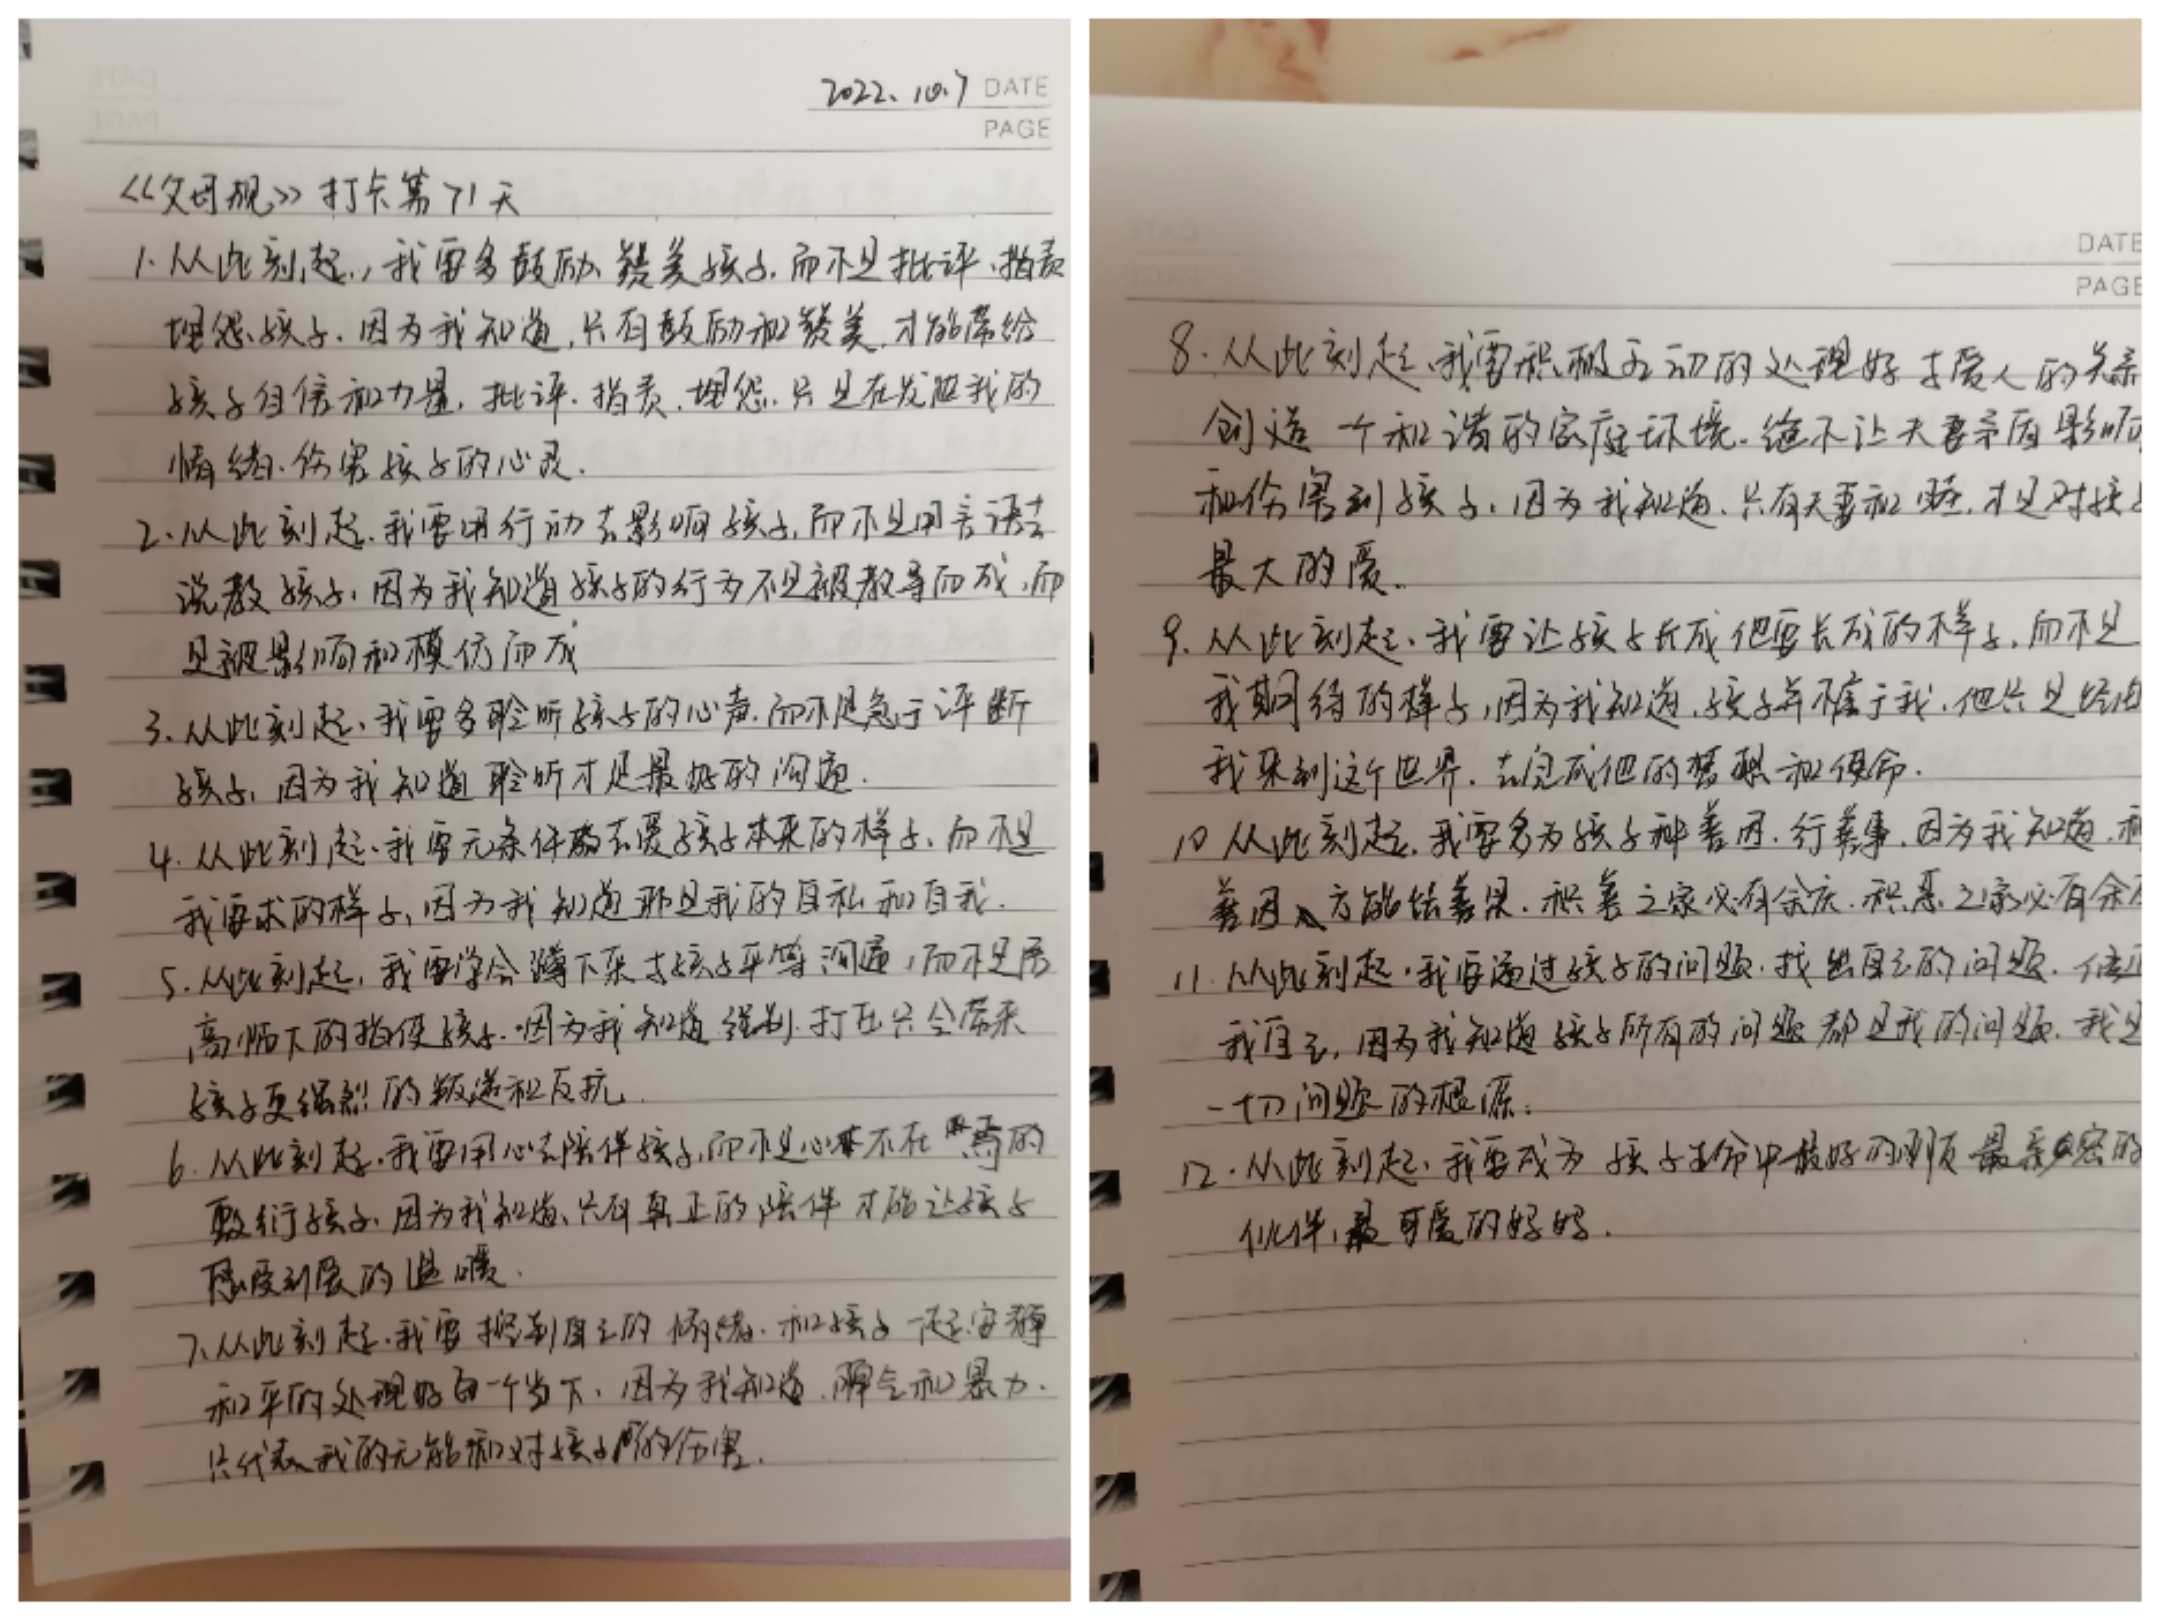 2022.10.7 DATE
PAGE
<<父母规>>打卡第71天
1.从此刻起,我要多鼓励、赞美孩子,而不是批评、指责
埋怨孩子.因为我知道,只有鼓励和赞美,才能带给
孩子自信和力量,批评.指责.埋怨.只是在发泄我的
情绪.伤害孩子的心灵.
2.从此刻起.我要用行动去影响孩子,而不是用言语去
说教孩子,因为我知道孩子的行为不是被教导而成,而
是被影响和模仿而成
3.从此刻起、我要多聆听孩子的心声.而不是急于评断
孩子,因为我知道聆听才是最好的沟通.
4.从此刻起.我要无条件去爱孩子本来的样子,而不是
我要求的样子,因为我知道那是我的自私和自我.
5.从此刻起,我要学会蹲下来与孩子平等沟通,而不是居
高临下的指使孩子.因为我知道强制.打压只会带来
孩子更强烈的叛逆和反抗.
6.从此刻起.我要用心去陪伴孩子,而不是心不在焉的
敷衍孩子.因为我知道、只有真正的陪伴才能让孩子
感受到爱的温暖.
7.从此刻起.我要控制自己的情绪.和孩子一起安静
和平的处理好每一个当下.因为我知道.和暴力.
只代表我的无能和对孩子的伤害.
DATE
PAGE
8.从此刻起、我要积极互动的处理好与爱人的关系
创造一个和谐的家庭环境.绝不让夫妻矛盾影响
和伤害到孩子.因为我知道.只有夫妻和睦.才是对孩子
最大的爱.
9.从此刻起.我要让孩子长成他要长成的样子,而不是
我期待的样子,因为我知道.孩子并不属于我.他只是经由
我来到这个世界.去完成他的梦想和使命.
10从此刻起.我要多为孩子种善因.行善事.因为我知道.种
善因方能结善果.积善之家必有余庆.积恶之家必有余
11.从此刻起.我要通过孩子的问题.找出自己的问题.修正
我自己,因为我知道孩子所有的问题都是我的问题.我是
一切问题的根源.
12.从此刻起.我要成为孩子生命中最好的 最亲密的
伙伴,最可爱的妈妈.